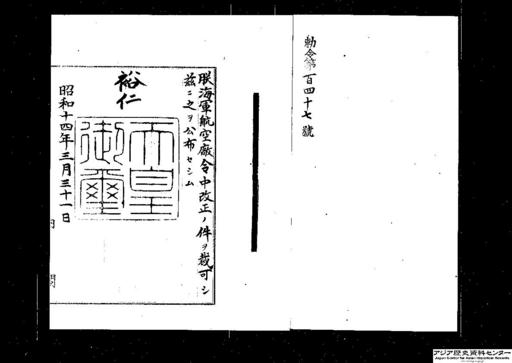 勅令第百四十七號
朕海軍航空廠令中改正ノ件ヲ裁可シ
茲ニ之ヲ公布セシム
裕仁
天皇
御璽
昭和十四年三月三十一日
内閣
アジア歴史資料センター
Japan Center for Asian Historical Records